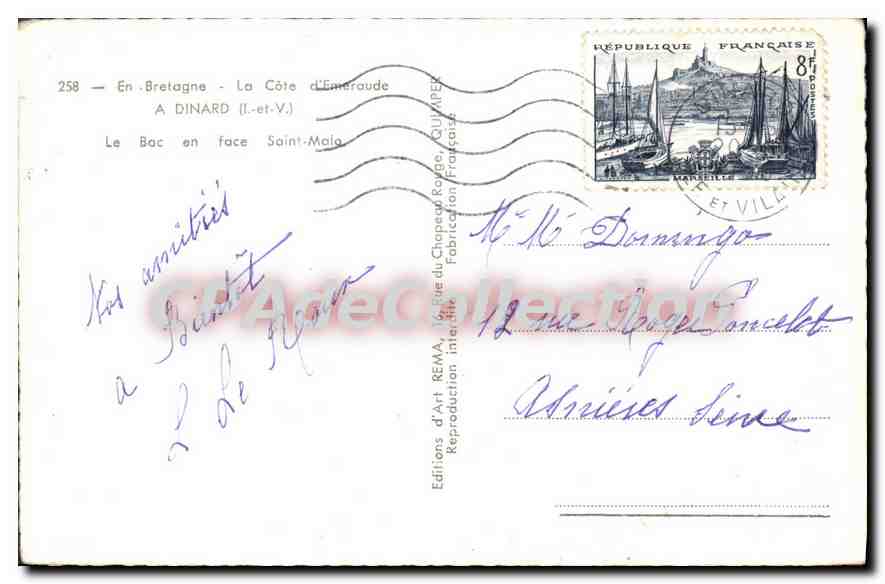 258 — En Bretagne - La Côte d'Emeraude
A DINARD (I.-et-V.)
Le Bac en face Saint-Malo
Nos amitiés
a Biantôt
L Le
Editions d'Art REMA, 16, Rue du Chapeau Rouge, QUIMPER
Reproduction interdite Fabrication Française
RÉPUBLIQUE FRANÇAISE
8F
POSTES
MARSEILLE
ET VILAINE
Domingo
12 rue Roger Poncelot
Asnières Seine
CPAdeCollection